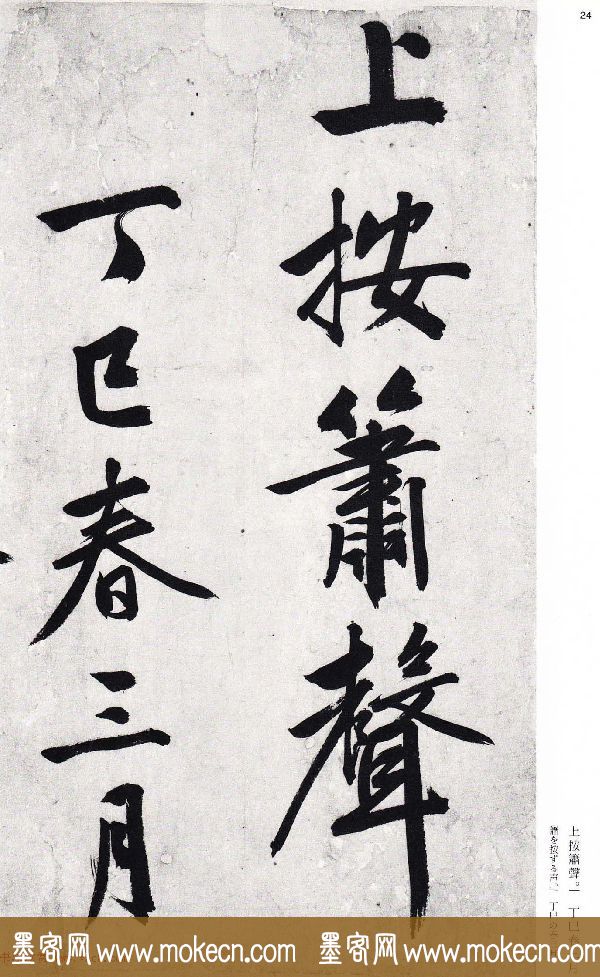 24
上按簫聲
丁巳春三月
上按簫聲。一 丁巳春
簫を按ずる声。」 丁巳の
墨客网 www.mokecn.com 墨客网 www.mokecn.com